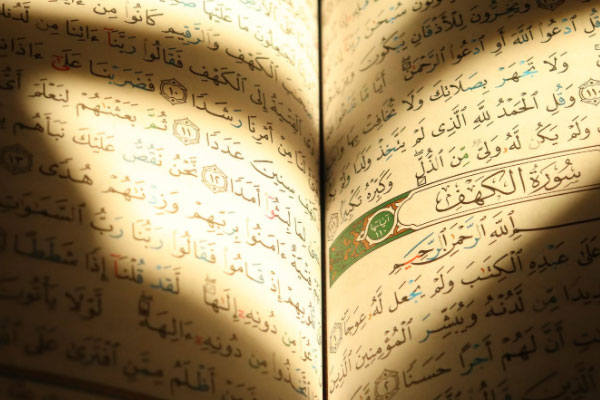 سُبْحَٰنَ
وَيَخِرُّونَ لِلْأَذْقَانِ يَبْكُونَ
قُلِ ٱدْعُوا۟ ٱللَّهَ أَوِ ٱدْعُوا۟ ٱلرَّحْمَٰنَ أَيًّا مَّا
وَلَا تَجْهَرْ بِصَلَاتِكَ وَلَا تُخَافِتْ بِهَا
١١٠ وَقُلِ ٱلْحَمْدُ لِلَّهِ ٱلَّذِى لَمْ يَتَّخِذْ وَلَدًا وَلَمْ
وَلَمْ يَكُن لَّهُۥ وَلِىٌّ مِّنَ ٱلذُّلِّ وَكَبِّرْهُ
سُورَةُ ٱلْكَهْفِ آياتها ١١٠
ٱللَّهِ ٱلرَّحْمَٰنِ ٱلرَّحِيمِ
عَلَىٰ عَبْدِهِ ٱلْكِتَٰبَ وَلَمْ يَجْعَل لَّهُۥ عِوَجَا
مِّن لَّدُنْهُ وَيُبَشِّرَ ٱلْمُؤْمِنِينَ ٱلَّذِينَ
أَنَّ لَهُمْ أَجْرًا حَسَنًا ٢
مَا عَلَيْهَا
ٱلْكَهْفِ وَٱلرَّقِيمِ كَانُوا۟ مِنْ
ٱلْفِتْيَةُ إِلَى ٱلْكَهْفِ فَقَالُوا۟ رَبَّنَآ ءَاتِنَا مِن لَّدُنكَ
مِنْ أَمْرِنَا رَشَدًا ١٠ فَضَرَبْنَا عَلَىٰٓ ءَاذَانِهِمْ
سِنِينَ عَدَدًا ١١ ثُمَّ بَعَثْنَٰهُمْ لِنَعْلَمَ أَىُّ
لِمَا لَبِثُوٓا۟ أَمَدًا ١٢ نَّحْنُ نَقُصُّ عَلَيْكَ نَبَأَهُم
ءَامَنُوا۟ بِرَبِّهِمْ وَزِدْنَٰهُمْ هُدًى ١٣
إِذْ قَامُوا۟ فَقَالُوا۟ رَبُّنَا رَبُّ ٱلسَّمَٰوَٰتِ
مِن دُونِهِۦٓ إِلَٰهًا لَّقَدْ قُلْنَآ إِذًا شَطَطًا
ٱتَّخَذُوا۟ مِن دُونِهِۦٓ ءَالِهَةً لَّوْلَا يَأْتُونَ
أَظْلَمُ مِمَّنِ ٱفْتَرَىٰ عَلَى